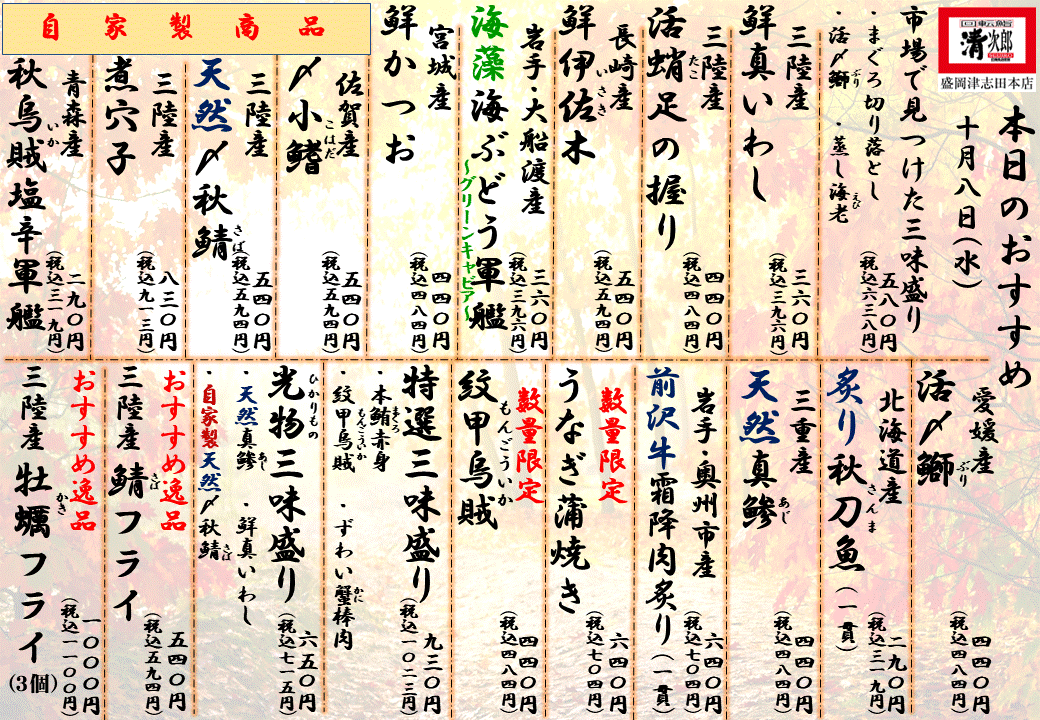 回転鮨
清次郎
盛岡津志田本店
本日のおすすめ
十月八日(水)
市場で見つけた三味盛り
・まぐろ切り落とし
・活〆鰤 ・蒸し海老
ぶり
えび
五八〇円
(税込六三八円)
三陸産
鮮真いわし
三六〇円
(税込三九六円)
三陸産
活蛸足の握り
たこ
四四〇円
(税込四八四円)
長崎産
鮮伊佐木
いさき
五四〇円
(税込五九四円)
岩手・大船渡産
海藻海ぶどう軍艦
~グリーンキャビア~
三六〇円
(税込三九六円)
宮城産
鮮かつお
四四〇円
(税込四八四円)
自家製商品
佐賀産
〆小鰭
こはだ
五四〇円
(税込五九四円)
三陸産
天然〆秋鯖
さば
五四〇円
(税込五九四円)
三陸産
煮穴子
八三〇円
(税込九一三円)
青森産
秋烏賊塩辛軍艦
いか
二九〇円
(税込三一九円)
愛媛産
活〆鰤
ぶり
四四〇円
(税込四八四円)
北海道産
炙り秋刀魚(一貫)
さんま
二九〇円
(税込三一九円)
三重産
天然真鯵
あじ
四四〇円
(税込四八四円)
岩手・奥州市産
前沢牛霜降肉炙り(一貫)
六四〇円
(税込七〇四円)
数量限定
うなぎ蒲焼き
六四〇円
(税込七〇四円)
数量限定
紋甲烏賊
もんごういか
四四〇円
(税込四八四円)
特選三味盛り
・本鮪赤身
まぐろ
・紋甲烏賊 ・ずわい蟹棒肉
もんごういか
かに
九三〇円
(税込一〇二三円)
光物三味盛り
ひかりもの
・天然真鯵 ・鮮真いわし
あじ
・自家製天然〆秋鯖
さば
六五〇円
(税込七一五円)
おすすめ逸品
三陸産鯖フライ
さば
五四〇円
(税込五九四円)
おすすめ逸品
三陸産牡蠣フライ(3個)
かき
一〇〇〇円
(税込一一〇〇円)